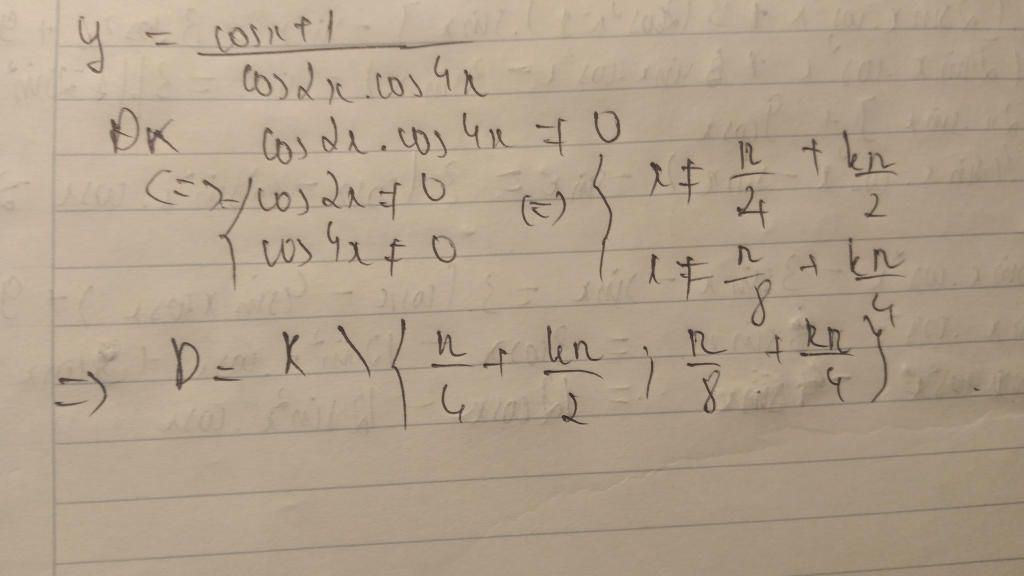 y = (cosx+1)/(cos2x.cos4x)
ĐK cos2x.cos4x ≠ 0
<=> { cos2x ≠ 0 (=) { x ≠ π/4 + kπ/2
cos4x ≠ 0 x ≠ π/8 + kπ/4
=> D = R \ { π/4 + kπ/2 ; π/8 + kπ/4 }